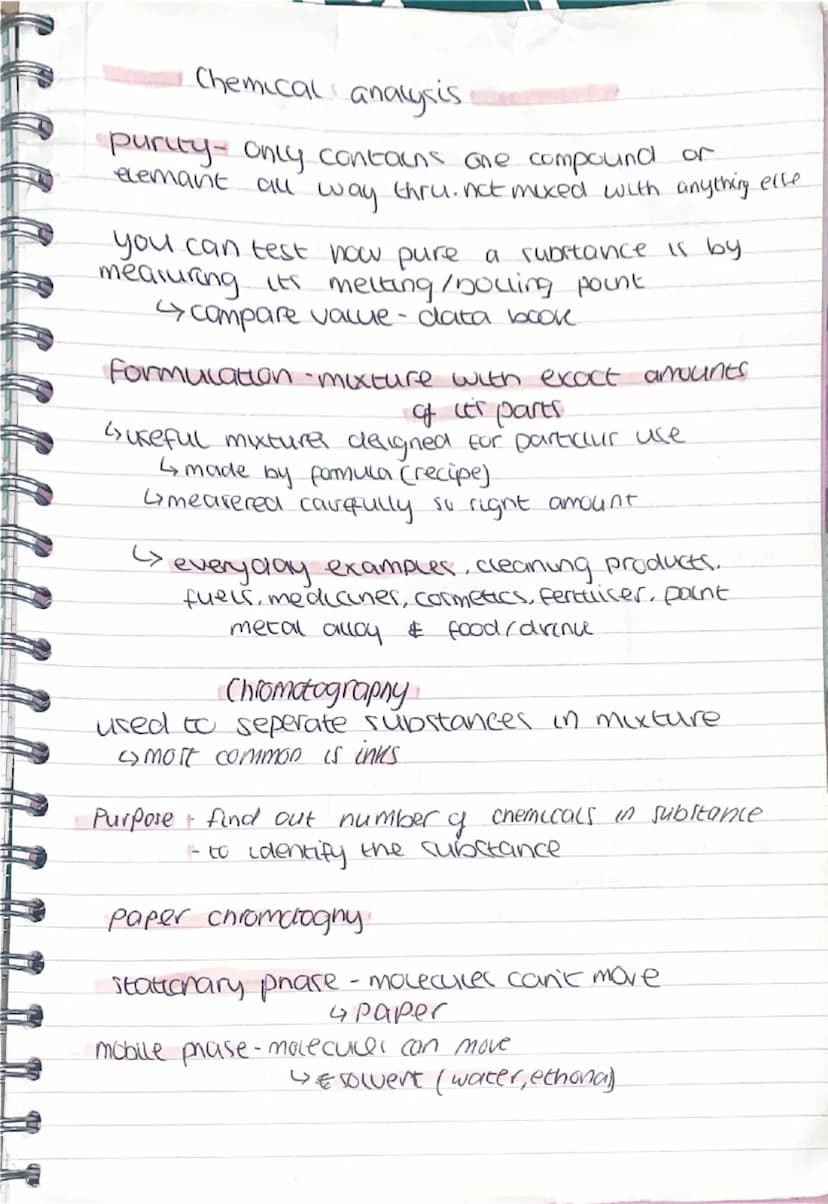 Chemical analysis
purity- only contains one compound or
elemant all way thru. not mixed with anything else
you can test how pure a substance is by
measuring its melting/boiling point
↳ compare value - data book
Formulation - mixture with exact amounts
of it's parts
↳ useful mixtures deigned for particlur use
↳ made by formula (recipe)
↳ measered carefully so right amount
↳ everyday examples, cleaning products,
fuels, medicines, cosmetics, fertiliser, paint
metal alloy & food/drink
Chromotography
used to seperate substances in mixture
↳ most common is inks
Purpose - find out number of chemicals in substance
- to identify the substance
paper chromotogrhy
stationary phase - molecules can't move
↳ paper
mobile phase - molecules can move
↳ solvent (water, ethonal)